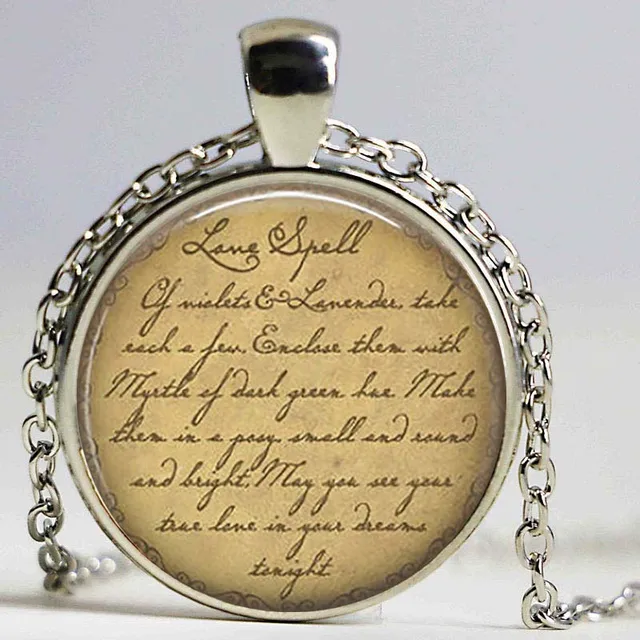 Love Spell
Of violets & Lavender, take
each a few, Enclose them with
Myrtle of dark green hue. Make
them in a posy small and round
and bright, May you see your
true love in your dreams
tonight.